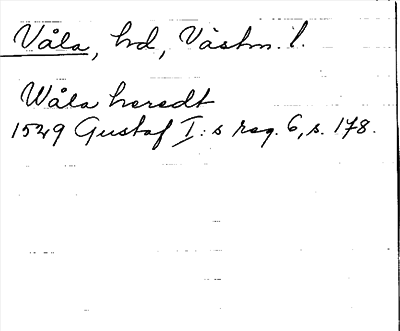 Våla, hd, Västm. l.
Wåla heredt
1529 Gustaf I:s reg. 6, s. 178.